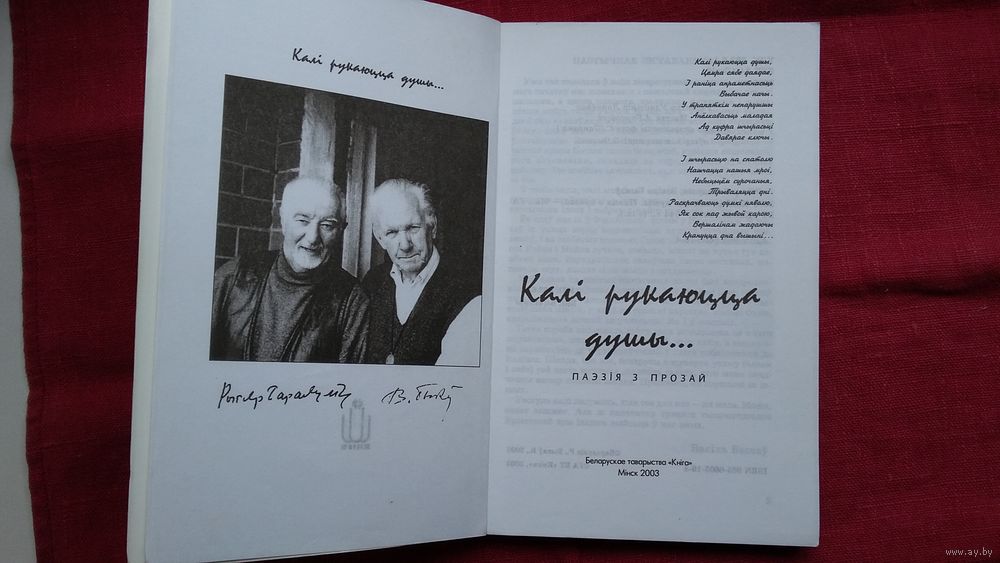 Калі рукаюцца душы...
Рыгор Барадулін
В. Быкаў
Калі рукаюцца душы,
Цемра сябе даядае,
І раніца апраметнасць
Выбачае начы.
У трапяткім непарушшы
Анёлкавасць маладая
Ад куфра шчырасці
Давярае ключы.
І шчырасцю на спатолю
Нашчацца нашыя мроі,
Небыццём сурочаныя,
Трываляцца дні.
Раскрачваюць думкі няволю,
Як сок пад жывой карою,
Вершалінам жадаючы
Крануцца дна вышыні...
Калі рукаюцца
душы...
ПАЭЗІЯ З ПРОЗАЙ
Беларускае таварыства «Кніга»
Мінск 2003
www.ay.by